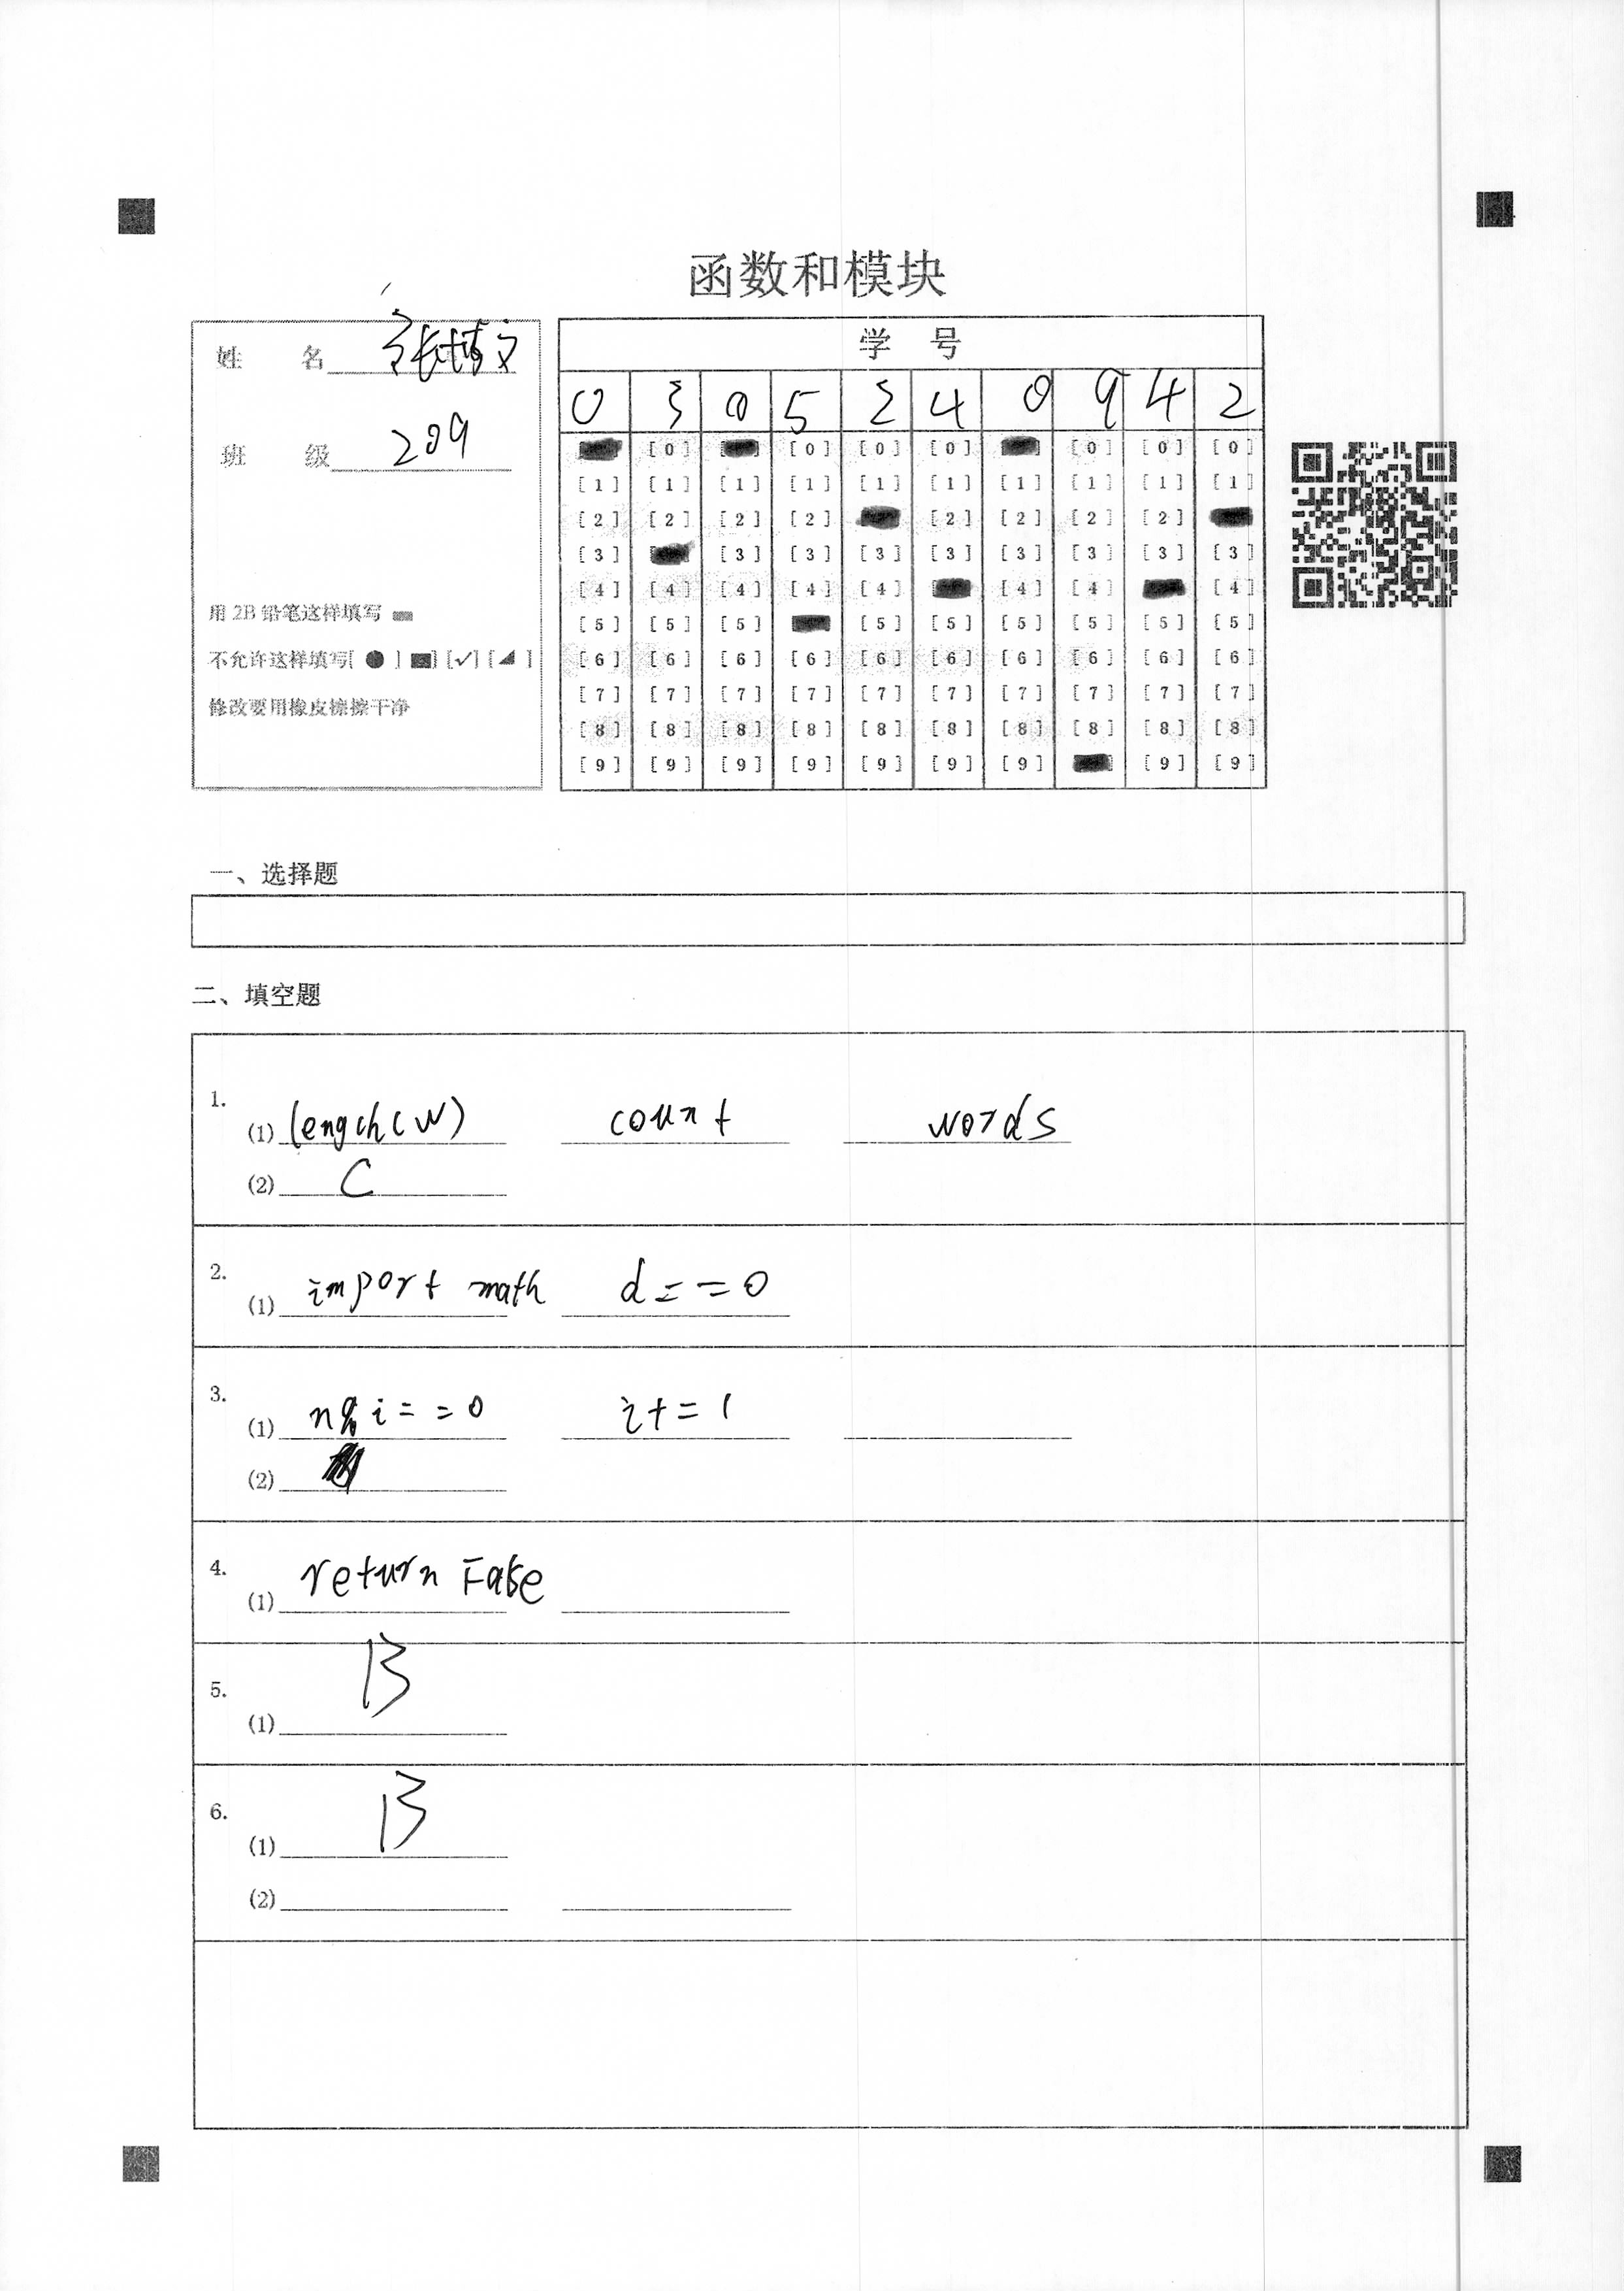 函数和模块
姓 名 张博文
班 级 209
用 2B 铅笔这样填写
不允许这样填写[ ● ] [✓] [ ]
修改要用橡皮擦擦干净
学 号
0 3 0 5 2 4 0 9 4 2
[0] [0] [0] [0] [0] [0] [0]
[1] [1] [1] [1] [1] [1] [1] [1] [1] [1]
[2] [2] [2] [2] [2] [2] [2] [2]
[3] [3] [3] [3] [3] [3] [3] [3] [3]
[4] [4] [4] [4] [4] [4] [4] [4]
[5] [5] [5] [5] [5] [5] [5] [5] [5]
[6] [6] [6] [6] [6] [6] [6] [6] [6] [6]
[7] [7] [7] [7] [7] [7] [7] [7] [7] [7]
[8] [8] [8] [8] [8] [8] [8] [8] [8] [8]
[9] [9] [9] [9] [9] [9] [9] [9] [9]
一、选择题
二、填空题
1.
(1) lengch(w) count words
(2) C
2.
(1) import math d==0
3.
(1) n%i==0 i+=1
(2)
4.
(1) return False
5.
(1) B
6.
(1) B
(2)